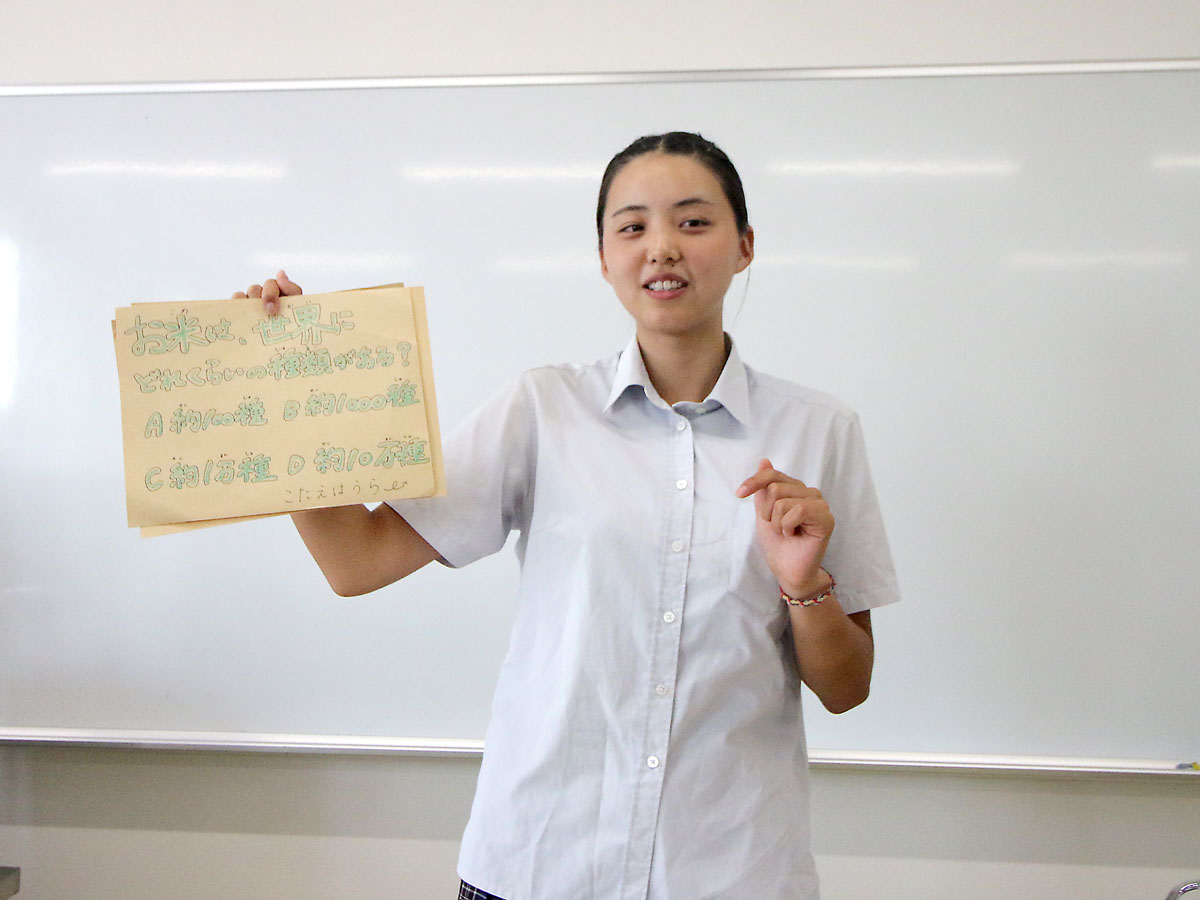 お米は、世界に
どれくらいの種類がある?
A 約100種 B 約1000種
C 約1万種 D 約10万種
こたえはうら